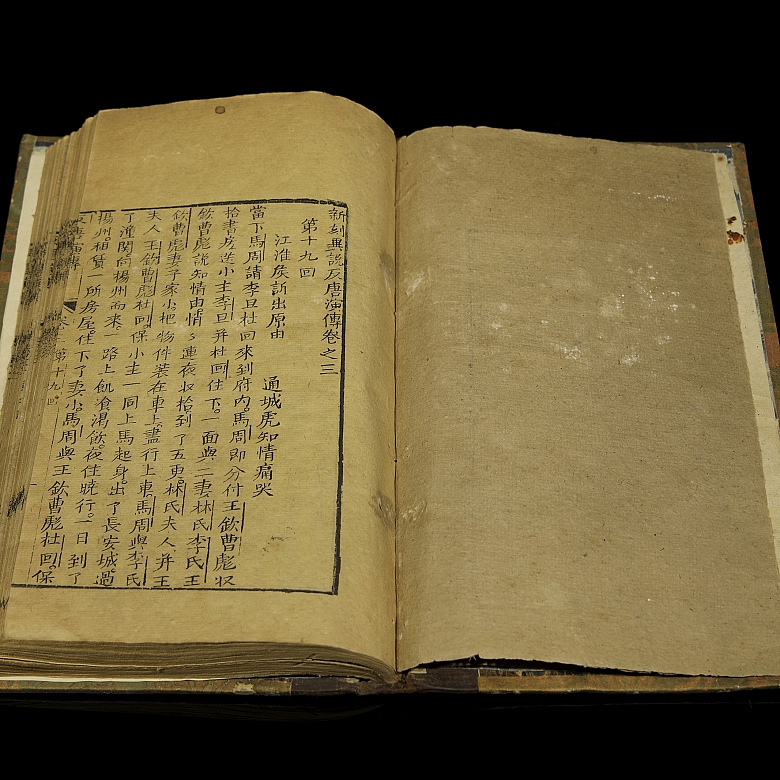 新刻異說反唐演傳卷之三
第十九回
江淮侯訴出原由　通城虎知情痛哭
當下馬周請李旦杜回來到府內。馬周即分付王欽曹彪収
拾書房送小主李旦并杜回住下。一面與二妻林氏李氏王
欽曹彪說知情由。情々連夜収拾到了五更。林氏夫人并王
欽曹彪妻子家小把物件裝在車上。盡行上車。馬周與李氏
夫人王欽曹彪杜回。保小主一同上馬起身。出了長安城。過
了潼關。向揚州而來。一路上飢飡渴飲。夜住曉行。一日到了
揚州。租賃一所房屋。住下了妻小。馬周與王欽曹彪杜回。保
反唐演傳　卷三　第十九回